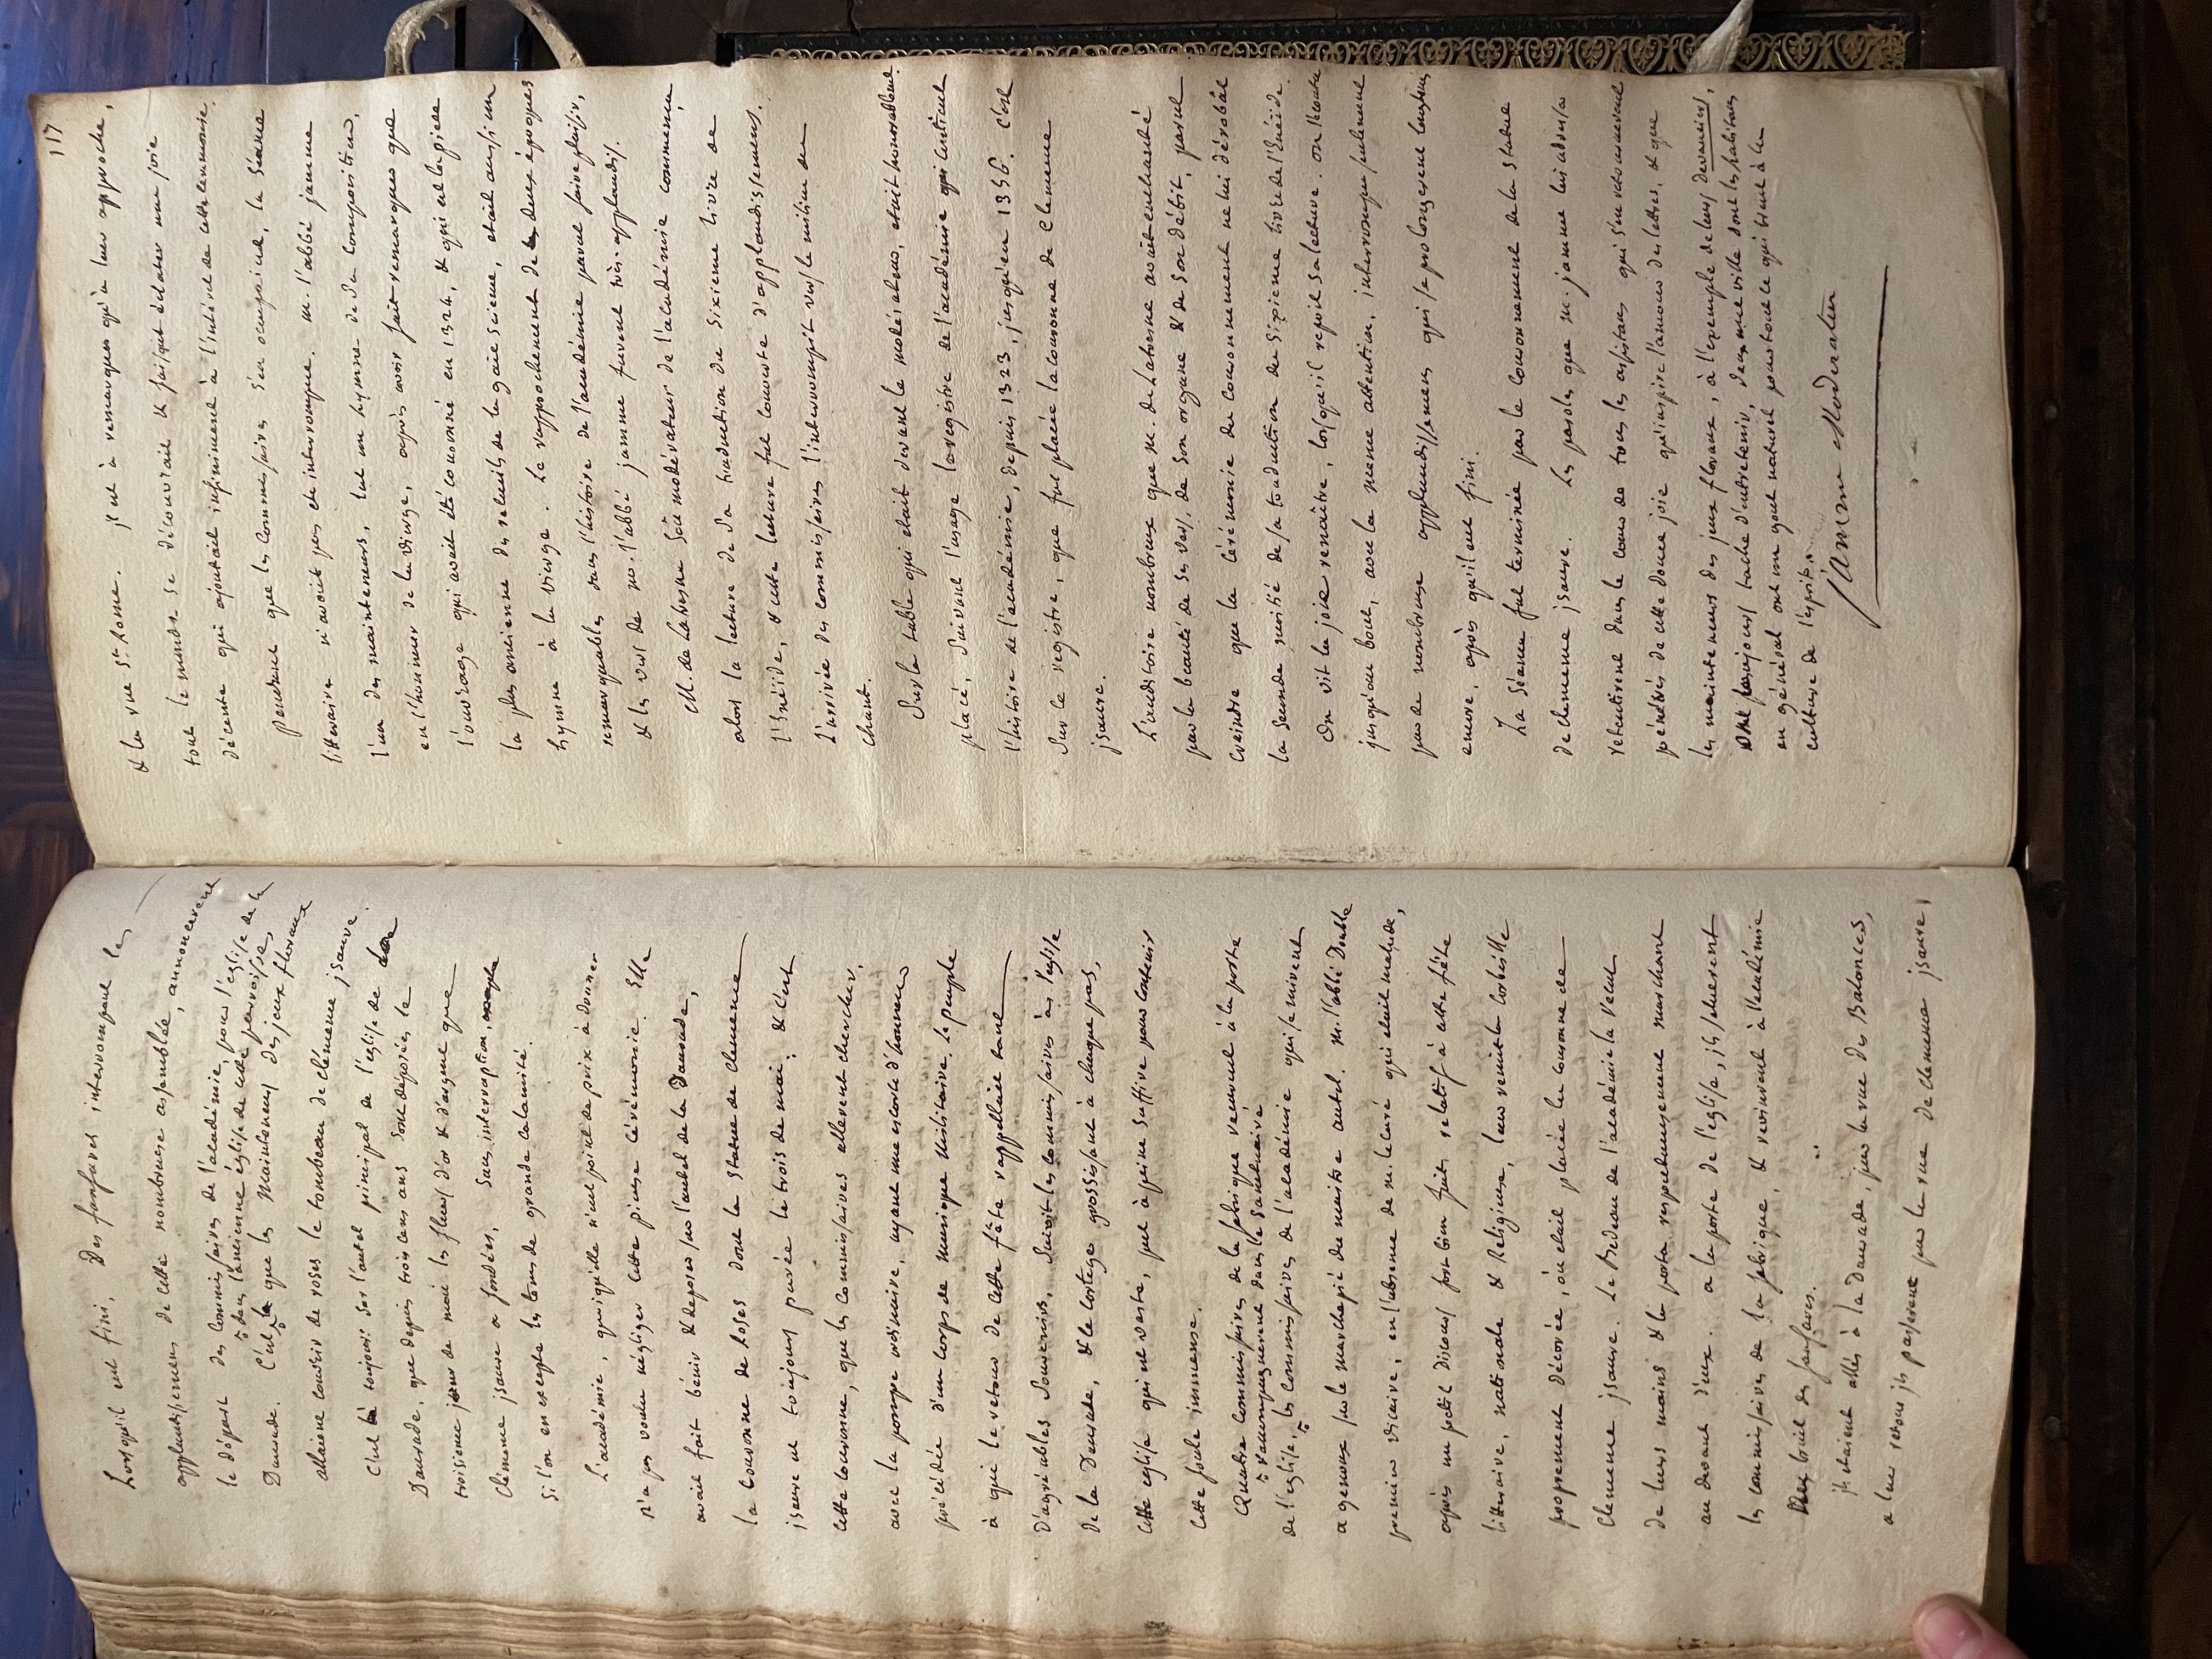 Lorsqu'il eut fini, Des fanfares interrompant les
applaudissemens de cette nombreuse assemblée, annoncerent
le départ des commissaires de l'académie, pour l'église de la
Daurade. C'est dans l'ancienne église de cette paroisse,
que les Mainteneurs des jeux floraux
allaient couvrir de roses le tombeau de clémence jsaure.
C'est toujours sur l'autel principal de l'église de la
Daurade, que depuis trois cens ans sont déposées le
troisieme jour de mai les fleurs d'or & d'argent que
Clémence jsaure a fondées, sans interruption,
si l'on en excepte les tems de grande calamité.
L'académie, quoiqu'elle n'eut point de prix à donner
n'a pas voulu négliger cette pieuse cérémonie. Elle
avait fait bénir & déposer sur l'autel de la Daurade,
la couronne de roses dont la statue de clemence
jsaure est toujours parée le trois de mai; & c'est
cette couronne, que les commissaires allerent chercher,
avec la pompe ordinaire, ayant une escorte d'honneur
précédée d'un corps de musique militaire. Le peuple
à qui le retour de cette fête rappellait tant
D'agréables souvenirs, suivit les commissaires à l'église
de la Daurade, & le cortege grossissant à chaque pas,
cette eglise qui est vaste, put à peine suffire pour contenir
cette foule immense.
Quatre commissaires de la fabrique vinrent à la porte
de l'eglise, & accompagnerent dans le sanctuaire
les commissaires de l'académie qui se mirent
a genoux sur le marchepié du maitre autel. M. l'abbé Double
premier vicaire, en l'absence de m. le curé qui était malade,
après un petit discours fort bien fait relatif à cette fête
litteraire, nationale & Religieuse, leur remit la corbeille
proprement décorée, où etait placée la couronne de
Clemence jsaure. Le Bedeau de l'académie la reçut
de leurs mains & la porta respectueusement marchant
au devant d'eux. a la porte de l'eglise, ils saluerent
les commissaires de la fabrique, & revinrent à l'académie
au bruit des fanfares.
jls étaient allés à la Daurade, par la rue des Balances,
a leur retour jls passerent par la rue de clemence jsaure,
117
& la rue St. Rome. jl est à remarquer qu'à leur approche,
tout le monde se découvrait & faisait éclater une joie
décente qui ajoutait infiniment à l'intérêt de cette cerémonie.
Pendant que les commissaires s'en occupaient, la séance
litteraire n'avait pas été interrompue. M. l'abbé jamme
l'un des mainteneurs, lut un hymne de sa composition,
en l'honneur de la vierge, après avoir fait remarquer que
l'ouvrage qui avait été couronné en 1324, & qui est la piece
la plus ancienne du recueil de la gaie science, etait aussi un
hymne à la vierge. Le rapprochement de deux époques
remarquables dans l'histoire de l'académie parut faire plaisir,
& les vers de m. l'abbé jamme furent très-applaudis.
M. de Latresne sous-modérateur de l'académie commença
alors la lecture de sa traduction du sixieme livre de
l'Enéïde, & cette lecture fut couverte d'applaudissemens.
L'arrivée des commissaires l'interrompit vers le milieu du
chant.
Sur la table qui etait devant le modérateur, etait honorablement
placé, suivant l'usage le registre de l'académie qui contient
l'histoire de l'académie, depuis 1323, jusqu'en 1356. C'est
sur ce registre, que fut placée la couronne de clemence
jsaure.
L'auditoire nombreux que M. de Latresne avait enchanté
par la beauté de ses vers, de son organe & de son débit, parut
craindre que la cérémonie du couronnement ne lui dérobât
la seconde moitié de sa traduction du sixieme livre de l'Enéïde.
On vit la joie renaître, lorsqu'il reprit sa lecture. on l'écouta
jusqu'au bout, avec la meme attention, interrompue seulement
par de nombreux applaudissemens qui se prolongerent longtems
encore, après qu'il eut fini.
La séance fut terminée par le couronnement de la statue
de clemence jsaure. Les paroles que M. jamme lui adressa
retentirent dans le cœur de tous les assistans qui s'en retournerent
pénétrés de cette douce joie qu'inspire l'amour des lettres, & que
les mainteneurs des jeux floraux, à l'exemple de leurs devanciers,
ont toujours taché d'entretenir, dans une ville dont les habitans
en général ont un gout naturel pour tout ce qui tient à la
culture de l'esprit.
Jamme Moderateur